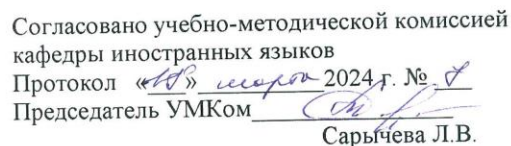 Согласовано учебно-методической комиссией
кафедры иностранных языков
Протокол «18» марта 2024 г. № 7
Председатель УМКом
Сарычева Л.В.